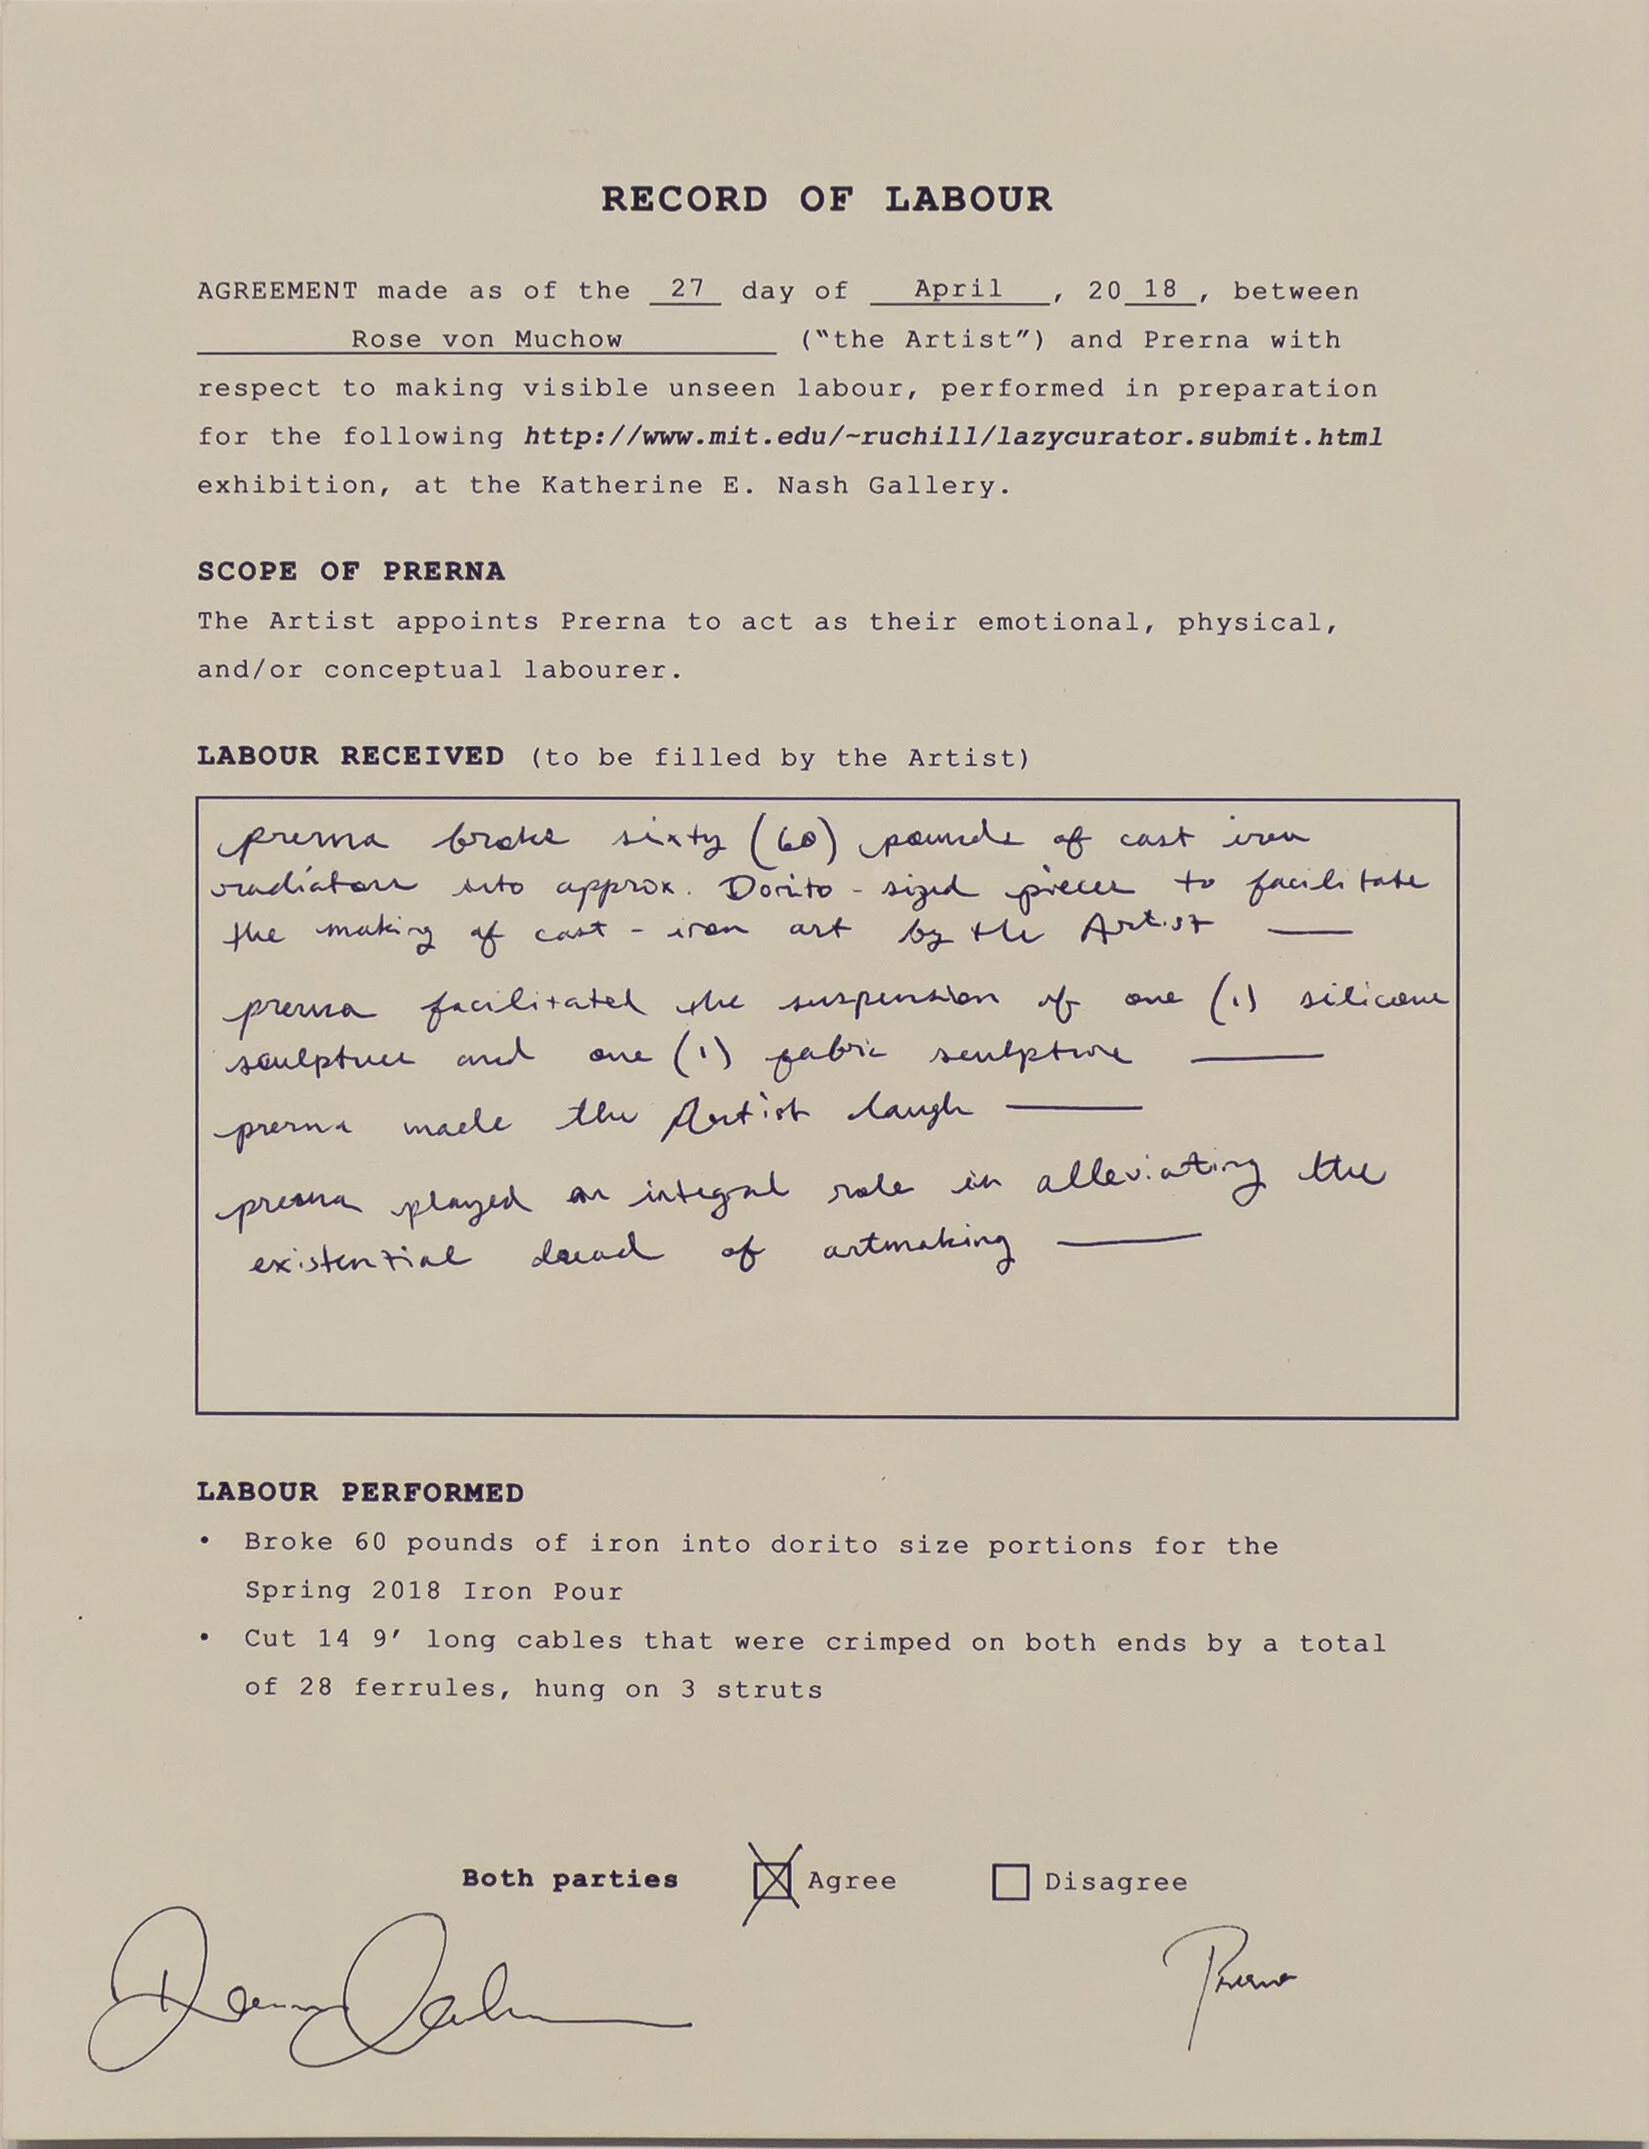 RECORD OF LABOUR
AGREEMENT made as of the 27 day of April, 20 18, between
Rose von Muchow ("the Artist") and Prerna with
respect to making visible unseen labour, performed in preparation
for the following http://www.mit.edu/~ruchill/lazycurator.submit.html
exhibition, at the Katherine E. Nash Gallery.
SCOPE OF PRERNA
The Artist appoints Prerna to act as their emotional, physical,
and/or conceptual labourer.
LABOUR RECEIVED (to be filled by the Artist)
prerna broke sixty (60) pounds of cast iron
radiators into approx. Dorito-sized pieces to facilitate
the making of cast-iron art by the Artist —
prerna facilitated the suspension of one (1) silicone
sculpture and one (1) fabric sculpture —
prerna made the Artist laugh —
prerna played an integral role in alleviating the
existential dread of artmaking —
LABOUR PERFORMED
• Broke 60 pounds of iron into dorito size portions for the
Spring 2018 Iron Pour
• Cut 14 9′ long cables that were crimped on both ends by a total
of 28 ferrules, hung on 3 struts
Both parties Agree Disagree
Prerna